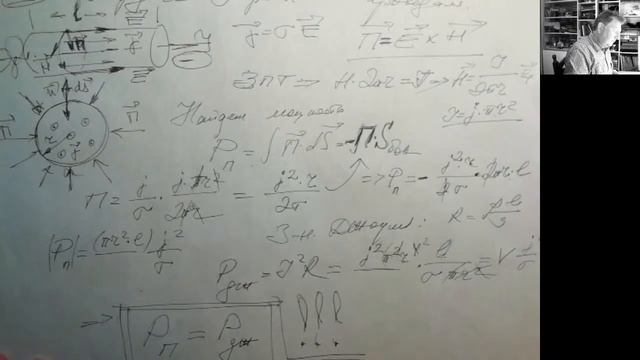 l
j⃗ = σE⃗
Π⃗ = E⃗ × H⃗
ЗПТ ⇒ H·2πr = J → H⃗ = J/2πr
J = j·πr²
Найдем мощность
P_П = ∫ Π⃗·dS⃗ = -Π·S_бок
Π = j/σ · j·πr²/2πr = j²·r/2σ
⇒ P_П = - j²·r/2σ · 2πr·l
З-н Джоуля:
|P_П| = (πr²·l) j²/σ
P_дж = J²R = j²π²r⁴ · l/σπr² = V j²/σ
⇒ P_П = P_дж !!!